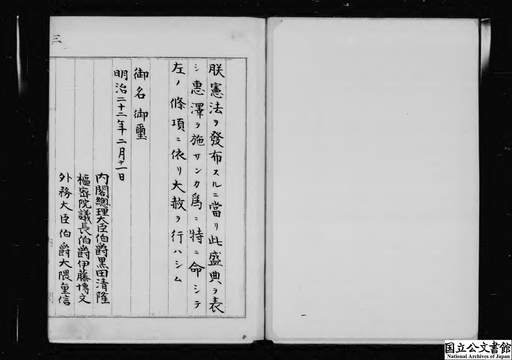 朕憲法ヲ發布スルニ當リ此盛典ヲ表
シ惠澤ヲ施サンカ爲ニ特ニ命シテ
左ノ條項ニ依リ大赦ヲ行ハシム
御名御璽
明治二十二年二月十一日
内閣總理大臣伯爵黒田清隆
樞密院議長伯爵伊藤博文
外務大臣伯爵大隈重信
三
国立公文書館
National Archives of Japan